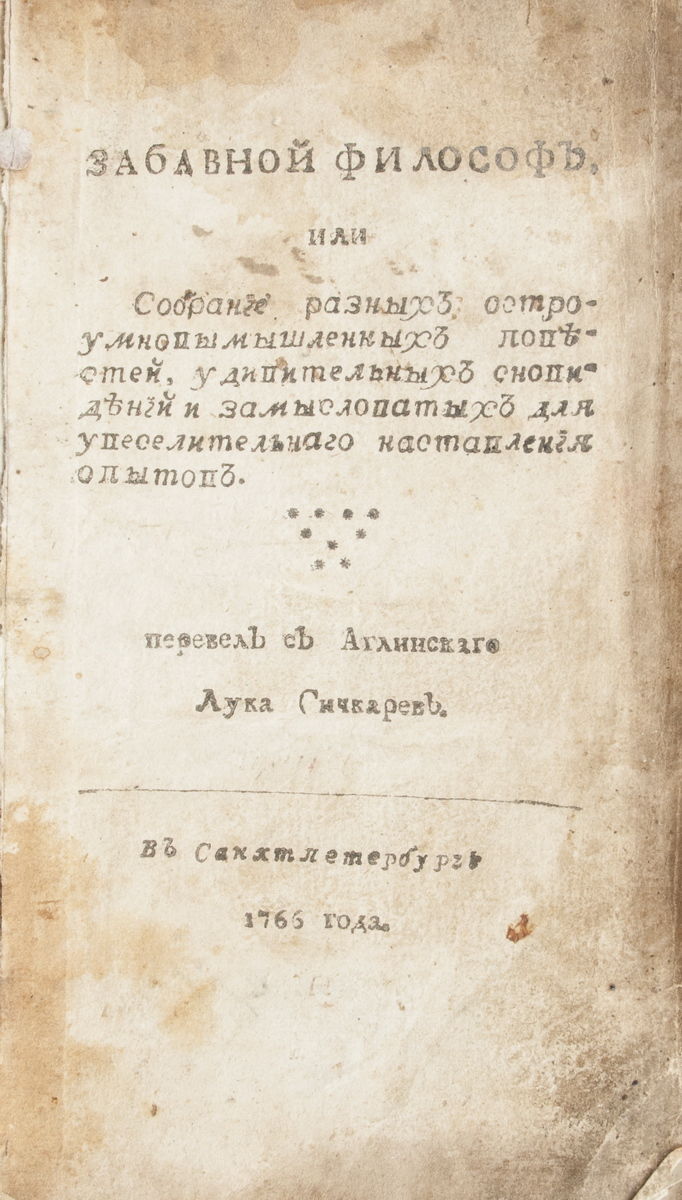 ЗАБАВНОЙ ФИЛОСОФЪ,
или
Собранїе разныхъ остро-
умновымышленныхъ повѣ-
стей, удивительныхъ снови-
дѣнїй и замысловатыхъ для
увеселительнаго наставленїя
опытовъ.
перевелЪ сЪ Аглинскаго
Лука СичкаревЪ.
вЪ Санктпетербургѣ
1766 года.